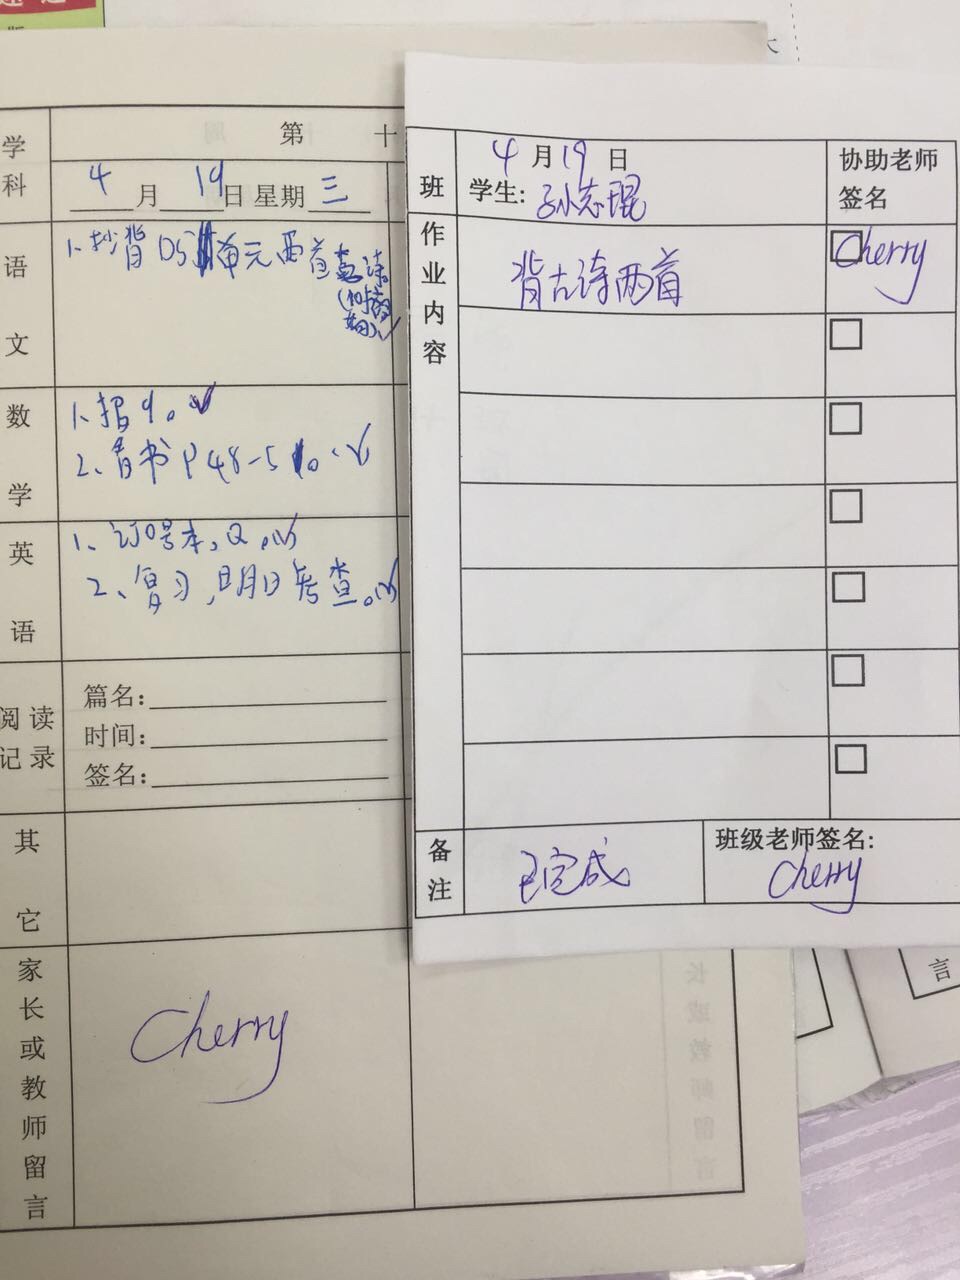 学科
第 十
4月19日 星期三
语文
1、抄背 单元两首
数学
1、报9。√
2、背书P48-5
英语
1、订0号本,
2、复习,明日考查。
阅读记录
篇名:
时间:
签名:
其它
家长或教师留言
Cherry
班
4月19日
学生: 孙志琨
协助老师签名
作业内容
背古诗两首
Cherry
备注
已完成
班级老师签名:
Cherry
言
长或教师留言